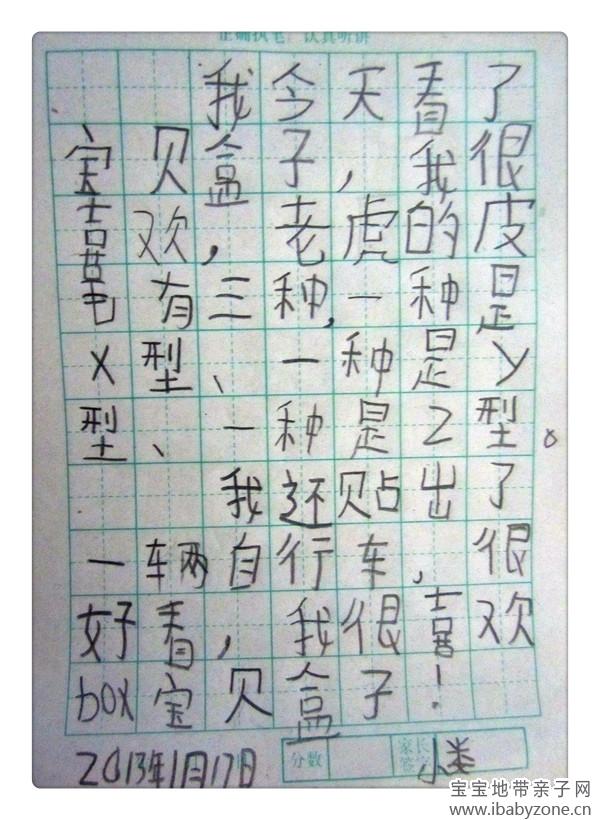 正确执笔，认真听讲
我今天看了
宝贝盒子，我很
喜欢，老虎的皮
毛有三种，一种是
X型、一种是Y
型、一种是Z型。
我还贴出了
一辆自行车，很
好看，我很喜欢
box宝贝盒子！
2013年1月17日
分数
家长签字
宝宝地带亲子网
www.ibabyzone.cn